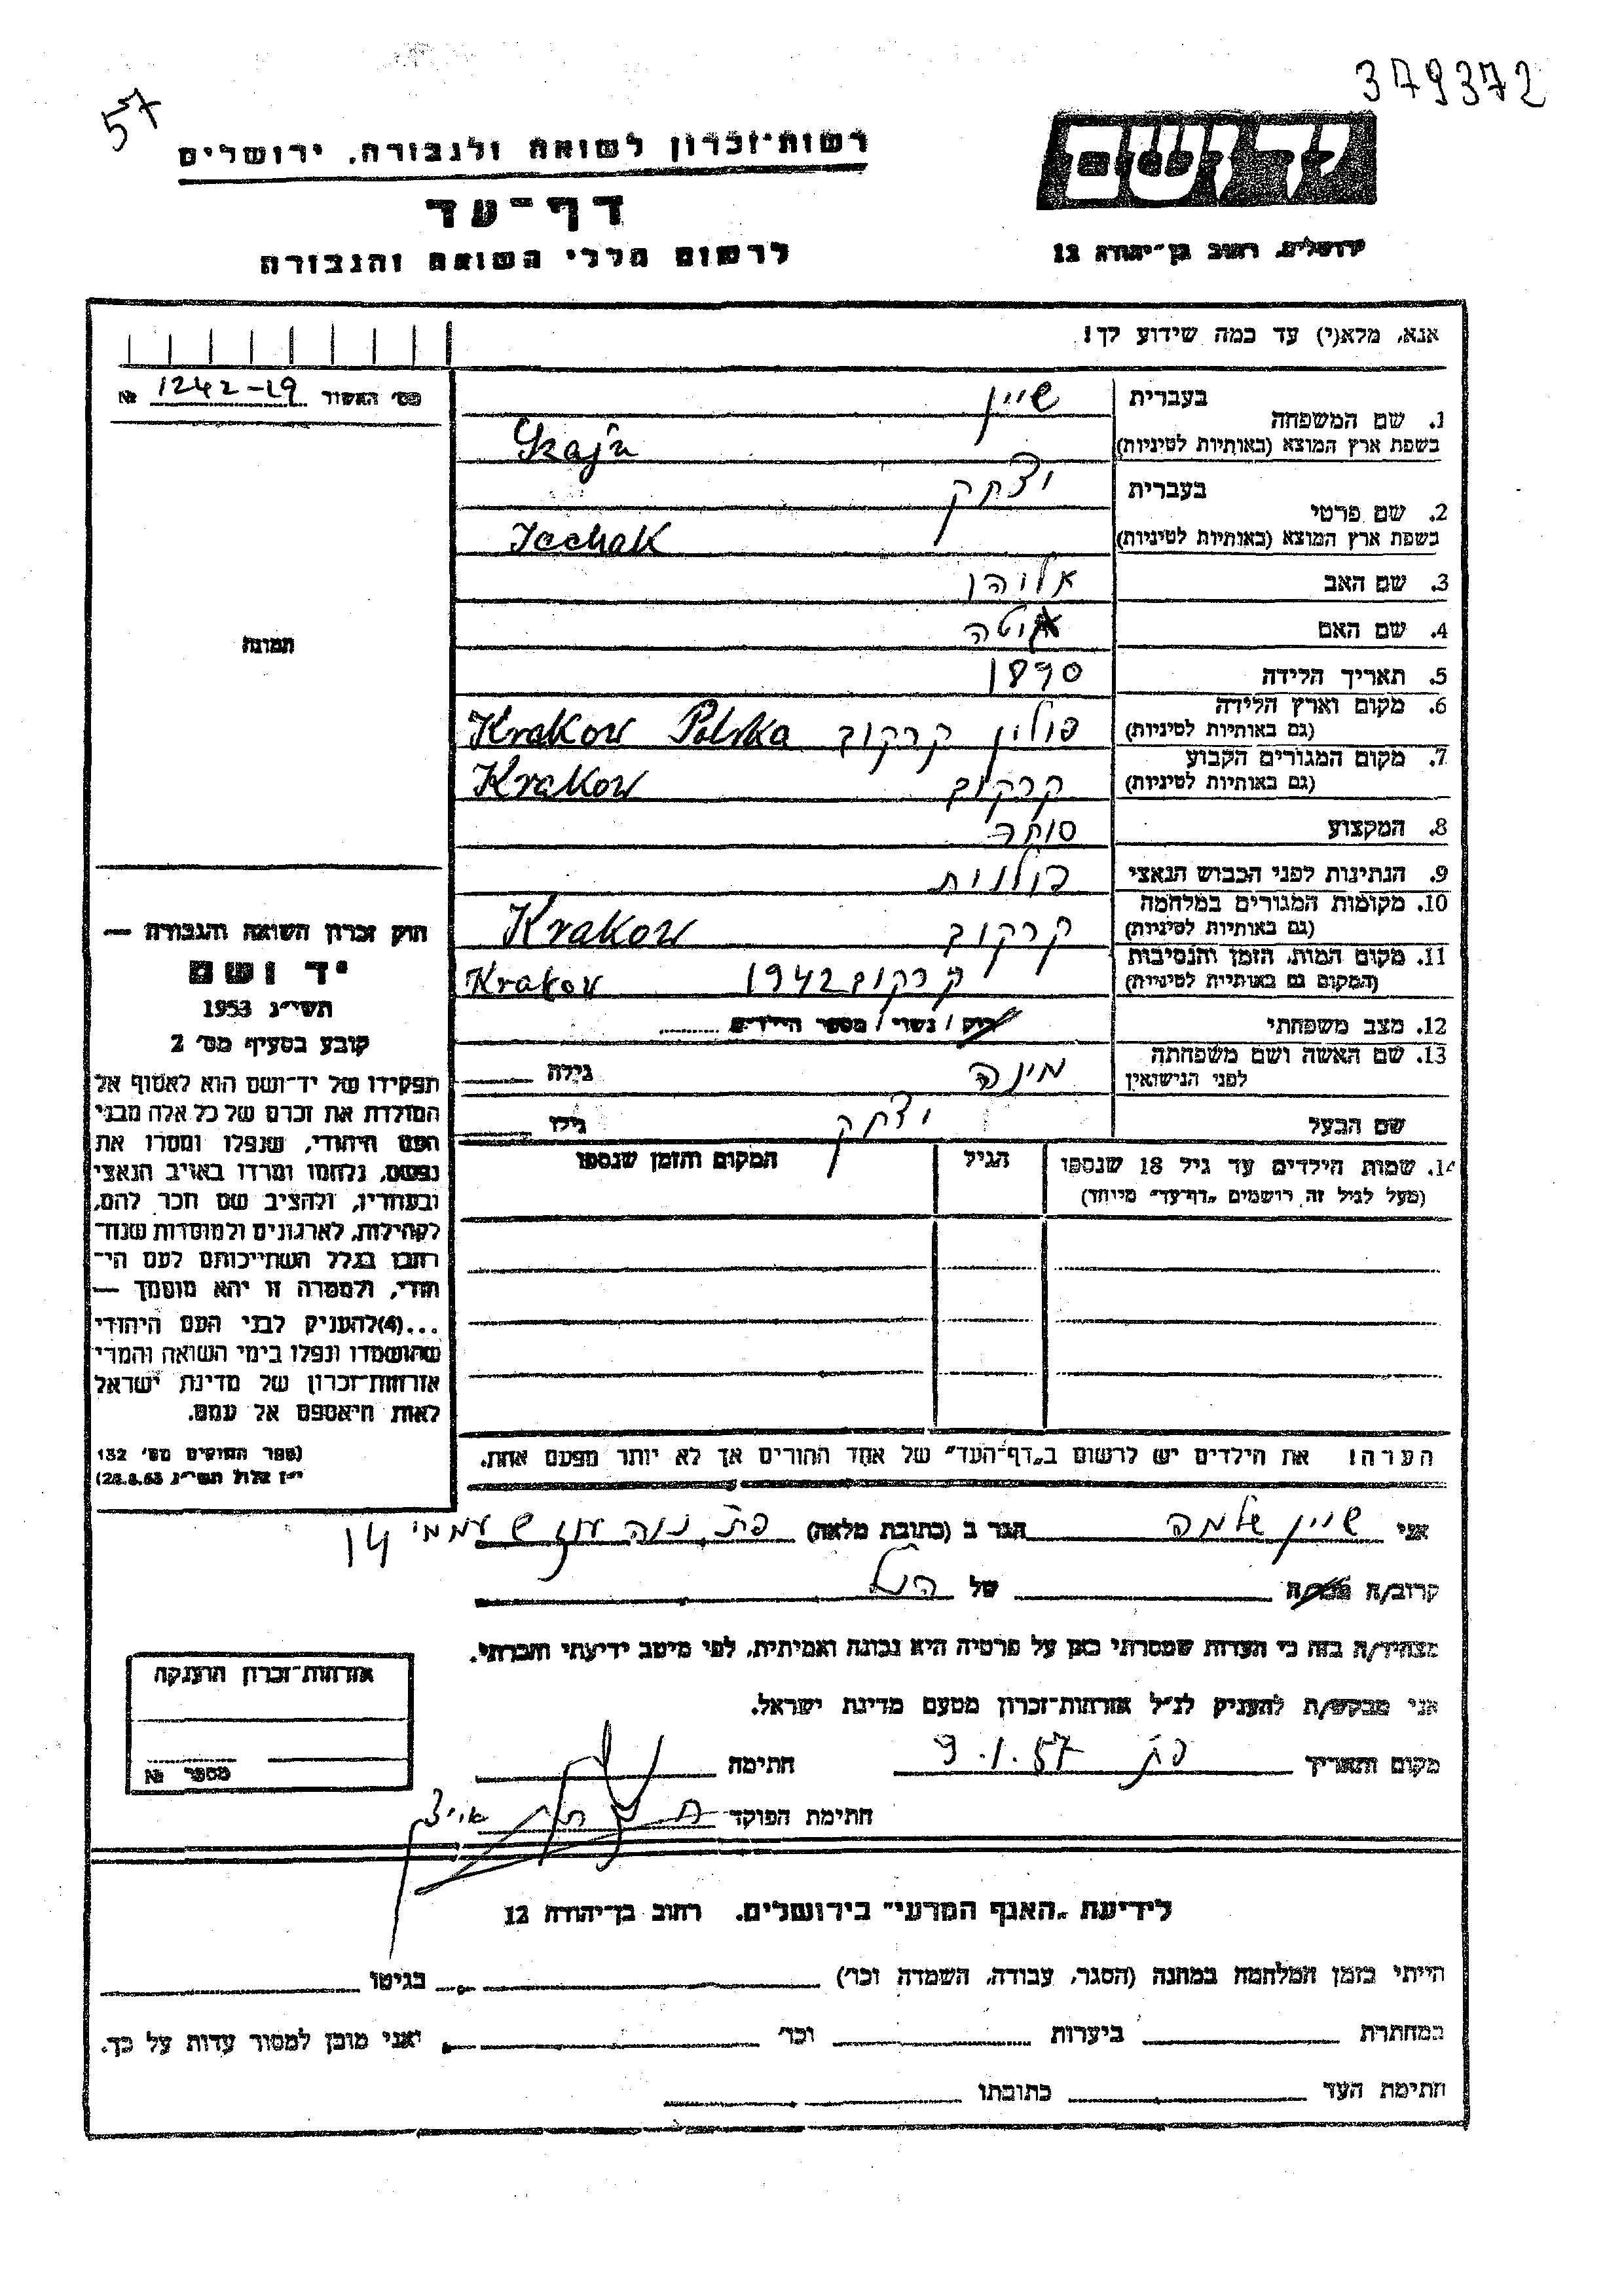 379372
57
יד ושם
רשות־זכרון לשואה ולגבורה, ירושלים
דף־עד
לרשום חללי השואה והגבורה
ירושלים, רחוב בן־יהודה 12
אנא, מלא(י) עד כמה שידוע לך!
מס' האשור 1242-19 №
בעברית שיין
1. שם המשפחה
בשפת ארץ המוצא (באותיות לטיניות) Szajn
בעברית יצחק
2. שם פרטי
בשפת ארץ המוצא (באותיות לטיניות) Icchak
3. שם האב אליהו
4. שם האם
5. תאריך הלידה 1890
6. מקום וארץ הלידה פולין קרקוב Krakow Polska
(גם באותיות לטיניות)
7. מקום המגורים הקבוע קרקוב Krakow
(גם באותיות לטיניות)
8. המקצוע סוחר
9. הנתינות לפני הכבוש הנאצי פולנית
10. מקומות המגורים במלחמה קרקוב Krakow
(גם באותיות לטיניות)
11. מקום המות, הזמן והנסיבות קרקוב 1942 Krakow
(המקום גם באותיות לטיניות)
12. מצב משפחתי רוק / נשוי / מספר הילדים
13. שם האשה ושם משפחתה מינה גילה
לפני הנישואין
שם הבעל יצחק גילו
14. שמות הילדים עד גיל 18 שנספו הגיל המקום והזמן שנספו
(מעל לגיל זה רושמים „דף־עד" מיוחד)
הערה! את הילדים יש לרשום ב„דף־העד" של אחד ההורים אך לא יותר מפעם אחת.
תמונה
חוק זכרון השואה והגבורה —
יד ושם
תשי"ג 1953
קובע בסעיף מס' 2
תפקידו של יד־ושם הוא לאסוף אל
המולדת את זכרם של כל אלה מבני
העם היהודי, שנפלו ומסרו את
נפשם, נלחמו ומרדו באויב הנאצי
ובעוזריו, ולהציב שם וזכר להם,
לקהילות, לארגונים ולמוסדות שנח־
רבו בגלל השתייכותם לעם הי־
הודי, ולמטרה זו יהא מוסמך —
...(4) להעניק לבני העם היהודי
שהושמדו ונפלו בימי השואה והמרי
אזרחות־זכרון של מדינת ישראל
לאות היאספם אל עמם.
(ספר החוקים מס' 132
י"ז אלול תשי"ג 28.8.53)
אני שיין שלמה הגר ב (כתובת מלאה) פת, נוה עוז ש עממי 14
קרוב/ה מכר/ה של הנ"ל
מצהיר/ה בזה כי העדות שמסרתי כאן על פרטיה היא נכונה ואמיתית, לפי מיטב ידיעתי והכרתי.
אני מבקש/ת להעניק לנ"ל אזרחות־זכרון מטעם מדינת ישראל.
מקום ותאריך פת 9.1.57 חתימה
חתימת הפוקד
אזרחות־זכרון הוענקה
מספר №
לידיעת „האגף המדעי" בירושלים, רחוב בן־יהודה 12
הייתי בזמן המלחמה במחנה (הסגר, עבודה, השמדה וכו') בגיטו
במחתרת ביערות וכו' ואני מוכן למסור עדות על כך.
חתימת העד כתובתו